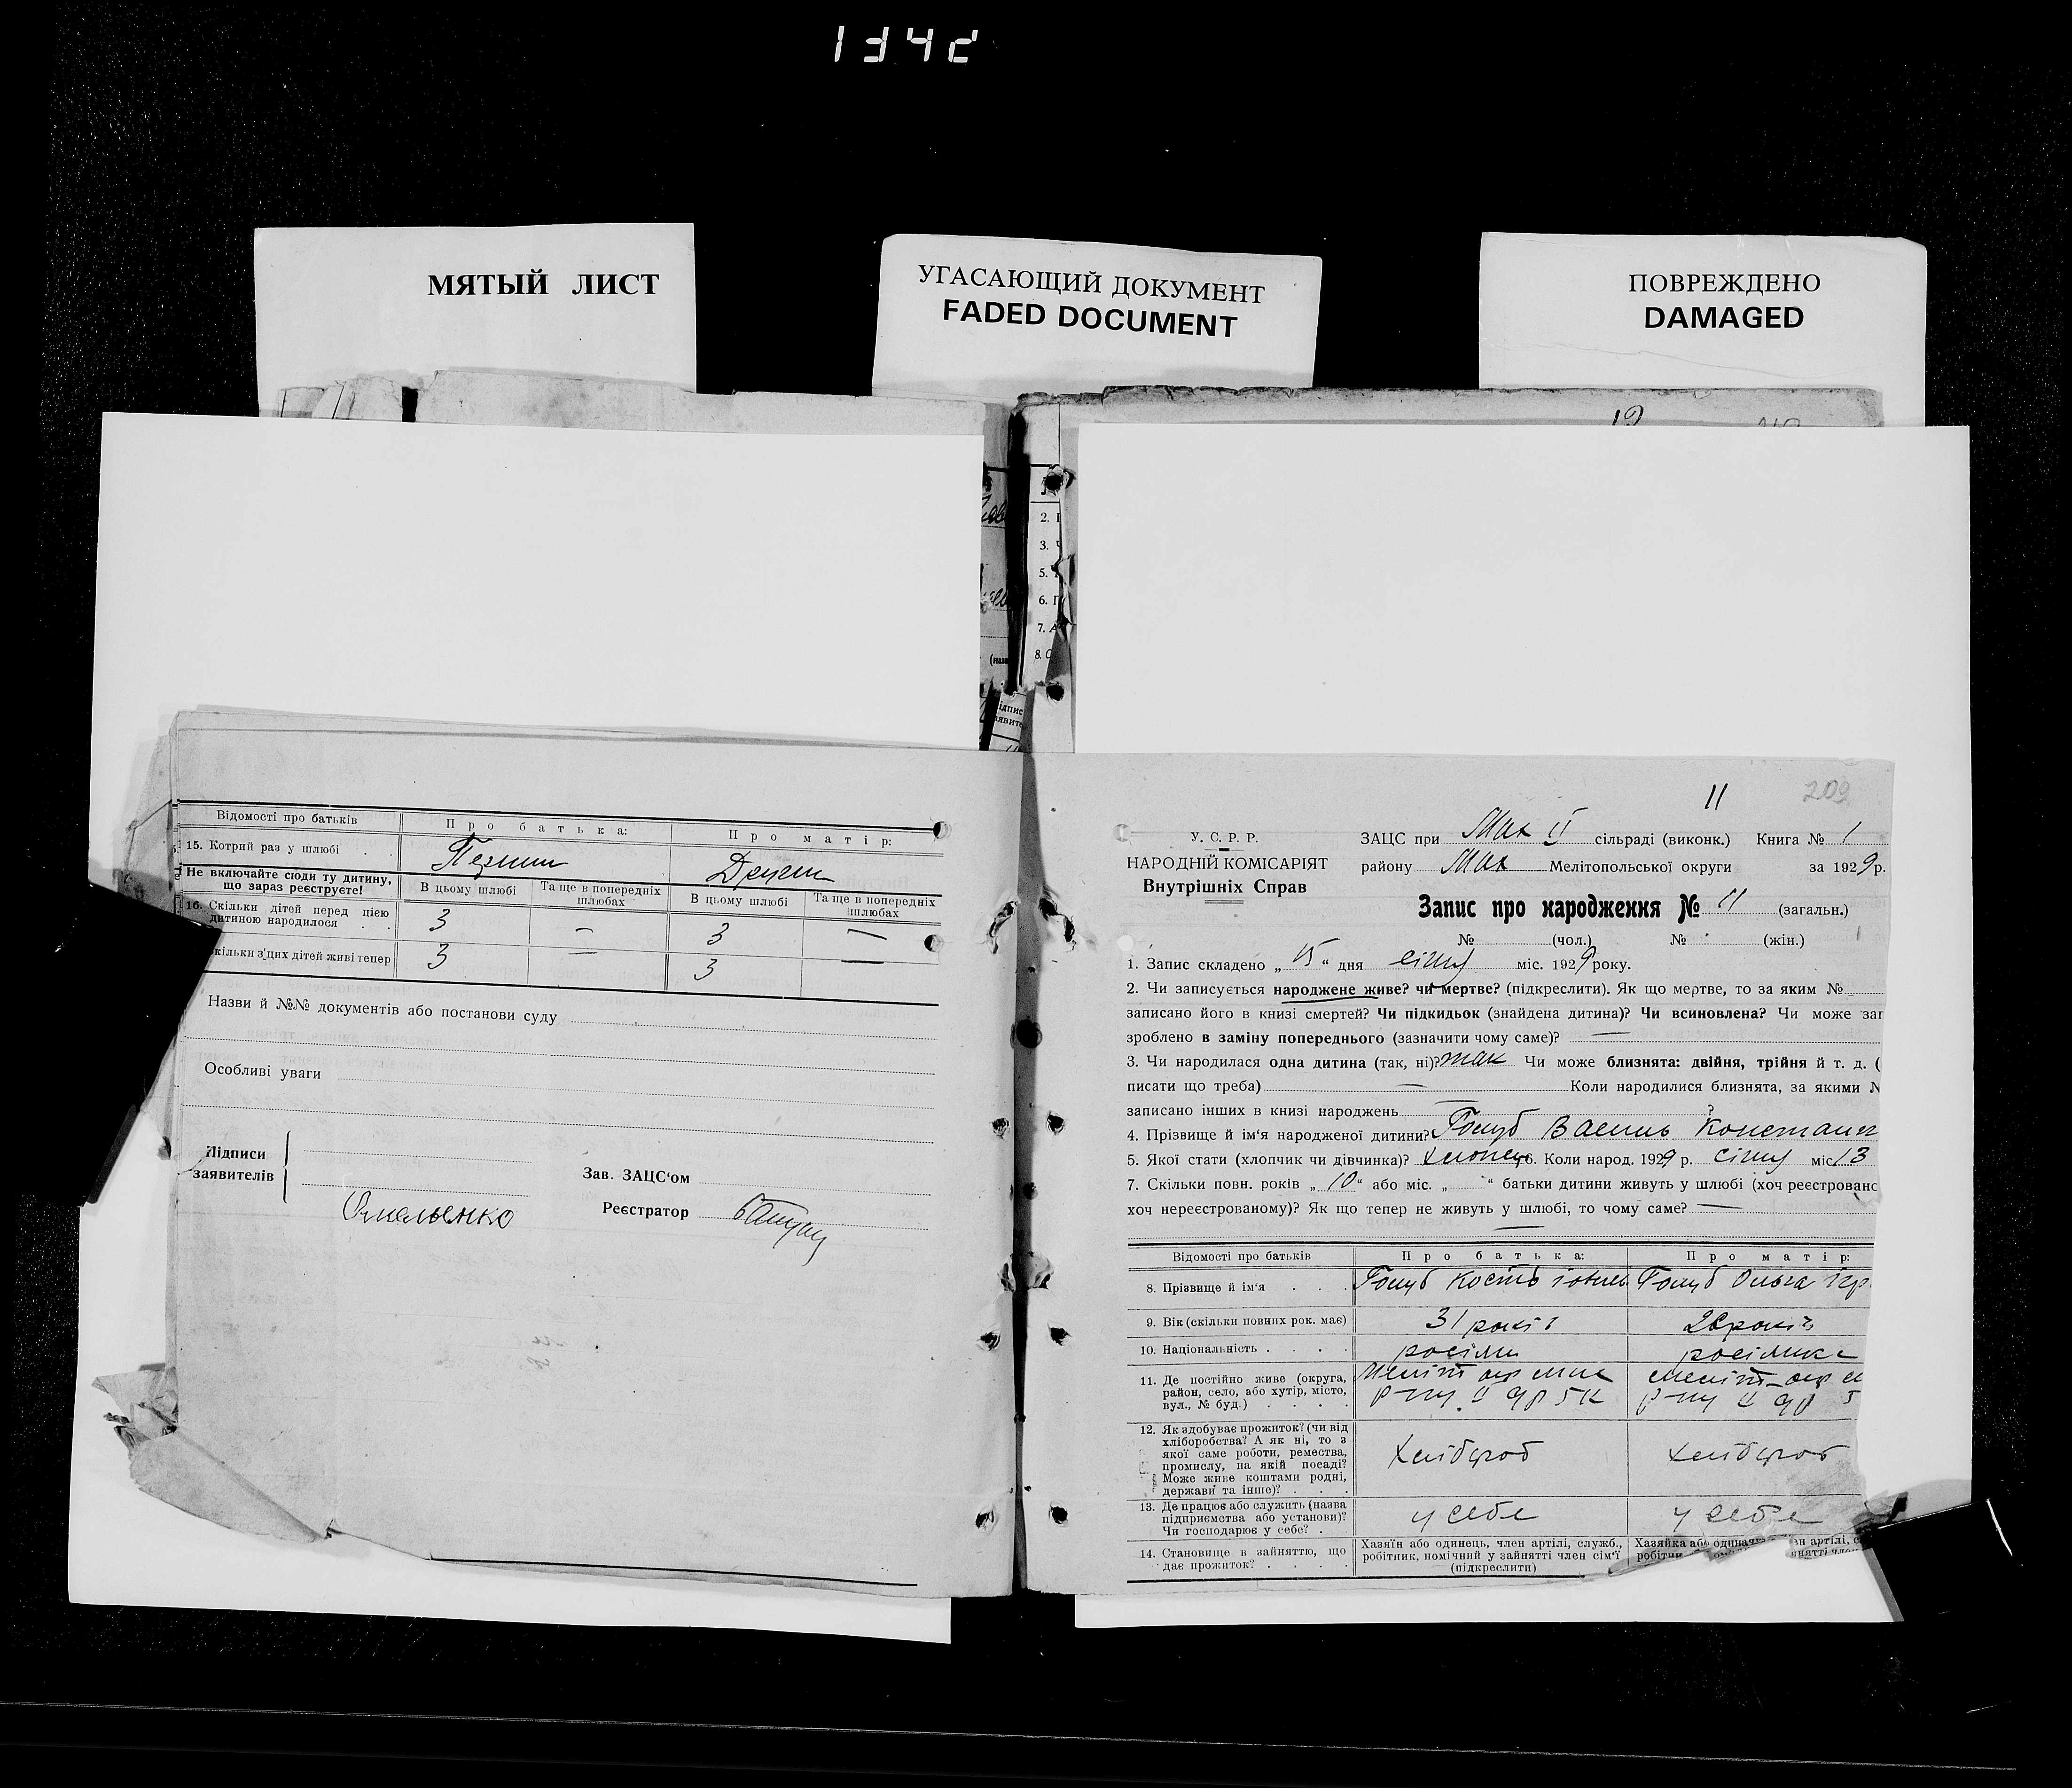 1342
МЯТЫЙ ЛИСТ
УГАСАЮЩИЙ ДОКУМЕНТ
FADED DOCUMENT
ПОВРЕЖДЕНО
DAMAGED
12
2.
3. Ч
5.
6. П
7. А
8.
(назв
Відомості про батьків
Про батька:
Про матір:
15. Котрий раз у шлюбі . .
Перший
Другий
Не включайте сюди ту дитину,
що зараз реєструєте!
В цьому шлюбі
Та ще в попередніх
шлюбах
В цьому шлюбі
Та ще в попередніх
шлюбах
16. Скільки дітей перед цією
дитиною народилося . .
3 — 3 —
кільки з цих дітей живі тепер
3 — 3 —
Назви й №№ документів або постанови суду
Особливі уваги
Підписи
заявителів
Зав. ЗАЦС'ом
Омельенко
Реєстратор
11
209
У. С. Р. Р.
НАРОДНІЙ КОМІСАРІЯТ
Внутрішніх Справ
ЗАЦС при Мах II сільраді (виконк.) Книга № 1
району Мах Мелітопольської округи за 1929 р.
Запис про народження № 11 (загальн.)
№ (чол.) № (жін.)
1. Запис складено „ 15 “ дня січня міс. 1929 року.
2. Чи записується народжене живе? чи мертве? (підкреслити). Як що мертве, то за яким №
записано його в книзі смертей? Чи підкидьок (знайдена дитина)? Чи всиновлена? Чи може зап
зроблено в заміну попереднього (зазначити чому саме)? —
3. Чи народилася одна дитина (так, ні)? так Чи може близнята: двійня, трійня й т. д. (
писати що треба) — Коли народилися близнята, за якими №
записано інших в книзі народжень — ?
4. Прізвище й ім'я народженої дитини? Голуб Василь Констант
5. Якої стати (хлопчик чи дівчинка)? хлопець 6. Коли народ. 1929 р. січня міс. 13
7. Скільки повн. років „ 10 “ або міс. „ “ батьки дитини живуть у шлюбі (хоч реєстрованс
хоч нереєстрованому)? Як що тепер не живуть у шлюбі, то чому саме? —
Відомості про батьків
Про батька:
Про матір:
8. Прізвище й ім'я . . .
Голуб Кость
Голуб Ольга
9. Вік (скільки повних рок. має)
31 років
28 років
10. Національність . . . .
росіяни
росіянка
11. Де постійно живе (округа,
район, село, або хутір, місто,
вул., № буд.) . . . .
Меліт окр
меліт окр
12. Як здобуває прожиток? (чи від
хліборобства? А як ні, то з
якої саме роботи, ремества,
промислу, на якій посаді?
Може живе коштами родні,
держави та інше)? . . .
Хлібороб
Хлібороб
13. Де працює або служить (назва
підприємства або установи)?
Чи господарює у себе? .
у себе
у себе
14. Становище в зайняттю, що
дає прожиток? . . . .
Хазяїн або одинець, член артілі, служб.,
робітник, помічний у зайнятті член сім'ї
(підкреслити)
Хазяйка або